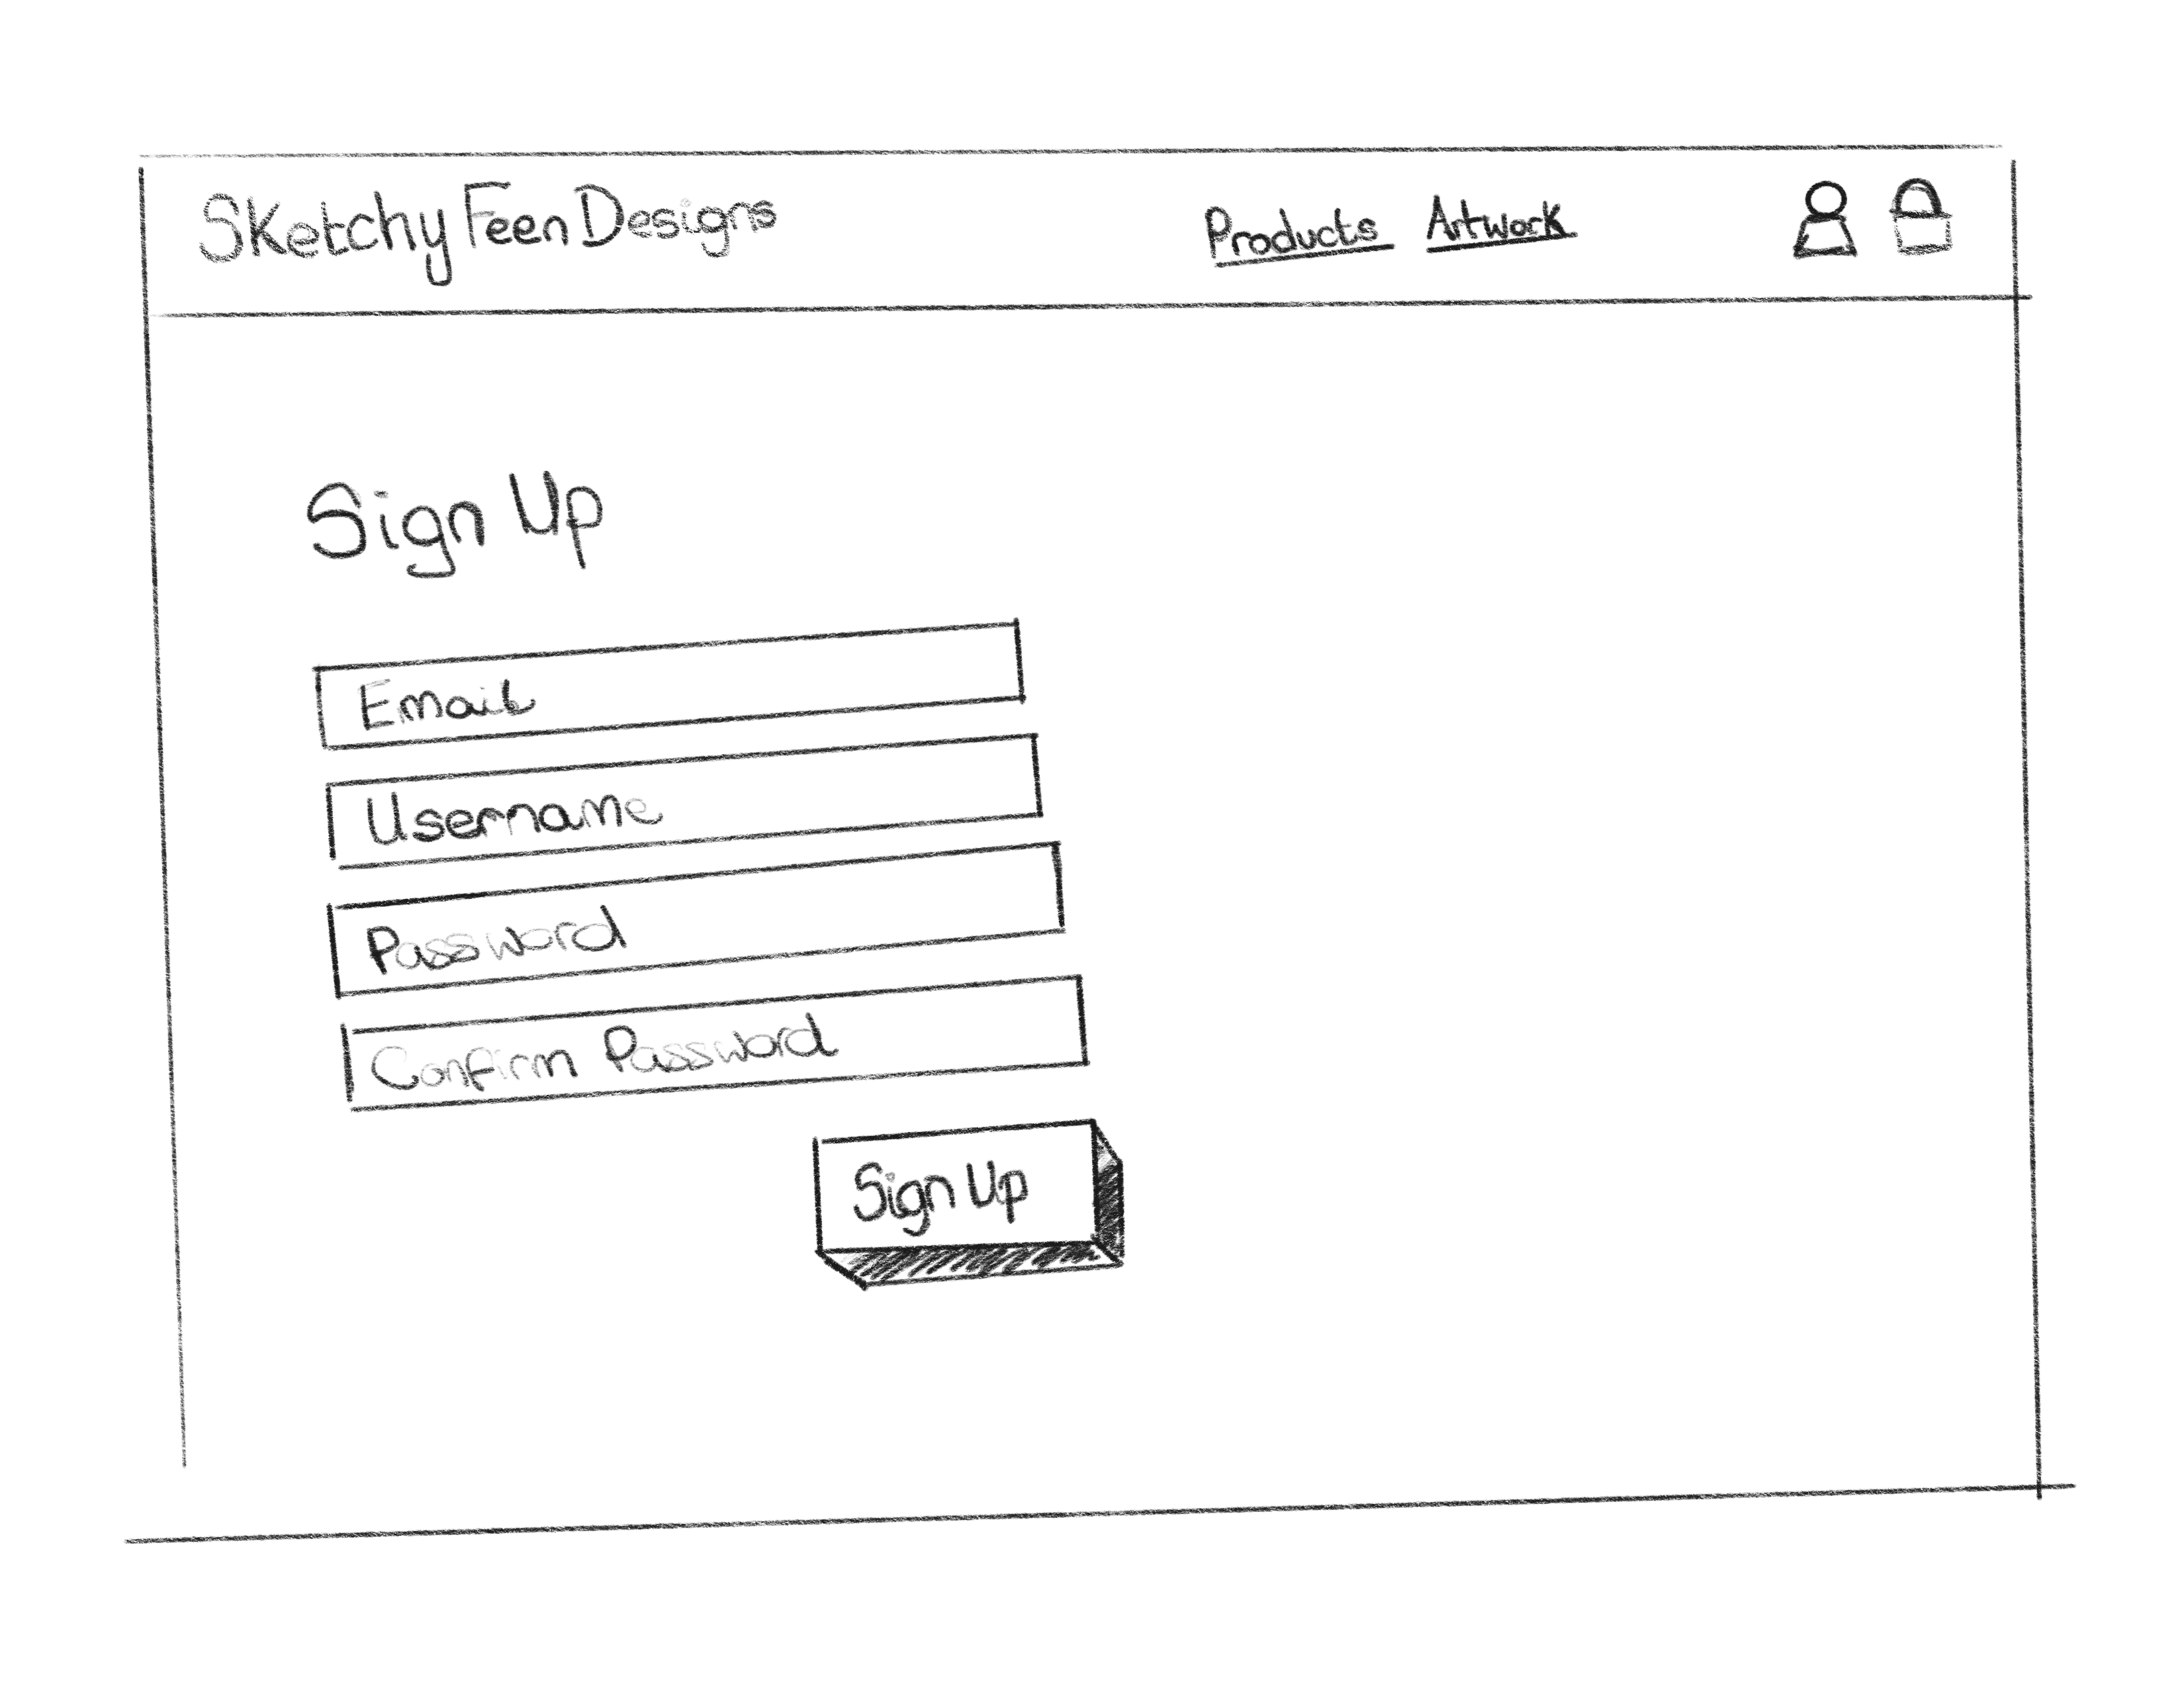 Sketchy Feen Designs
Products Artwork
Sign Up
Email
Username
Password
Confirm Password
Sign Up